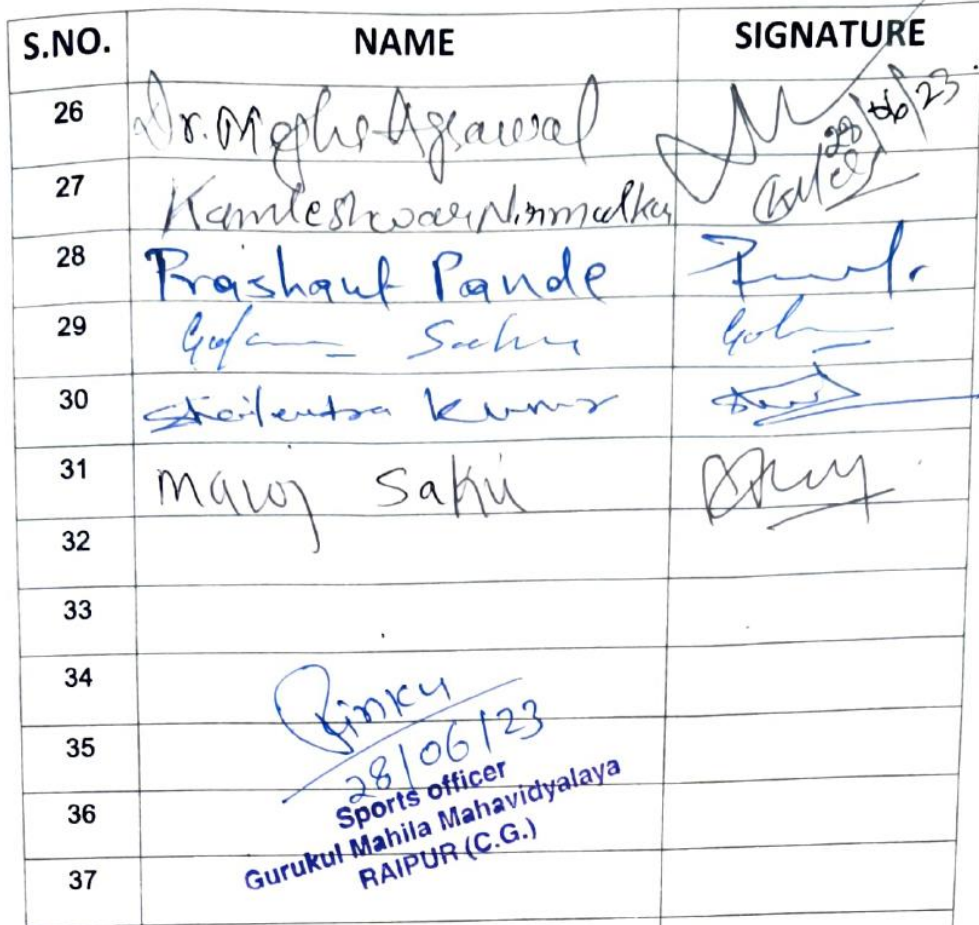 S.NO. NAME SIGNATURE
26 Dr. Megha Agrawal 28/06/23
27 Kamleshwar Nirmalkar
28 Prashant Pande
29 Sahu
30 Shailendra Kumar
31 Manoj Sahu
32
33
34
Rinku
35
28/06/23
Sports officer
36
Gurukul Mahila Mahavidyalaya
RAIPUR (C.G.)
37